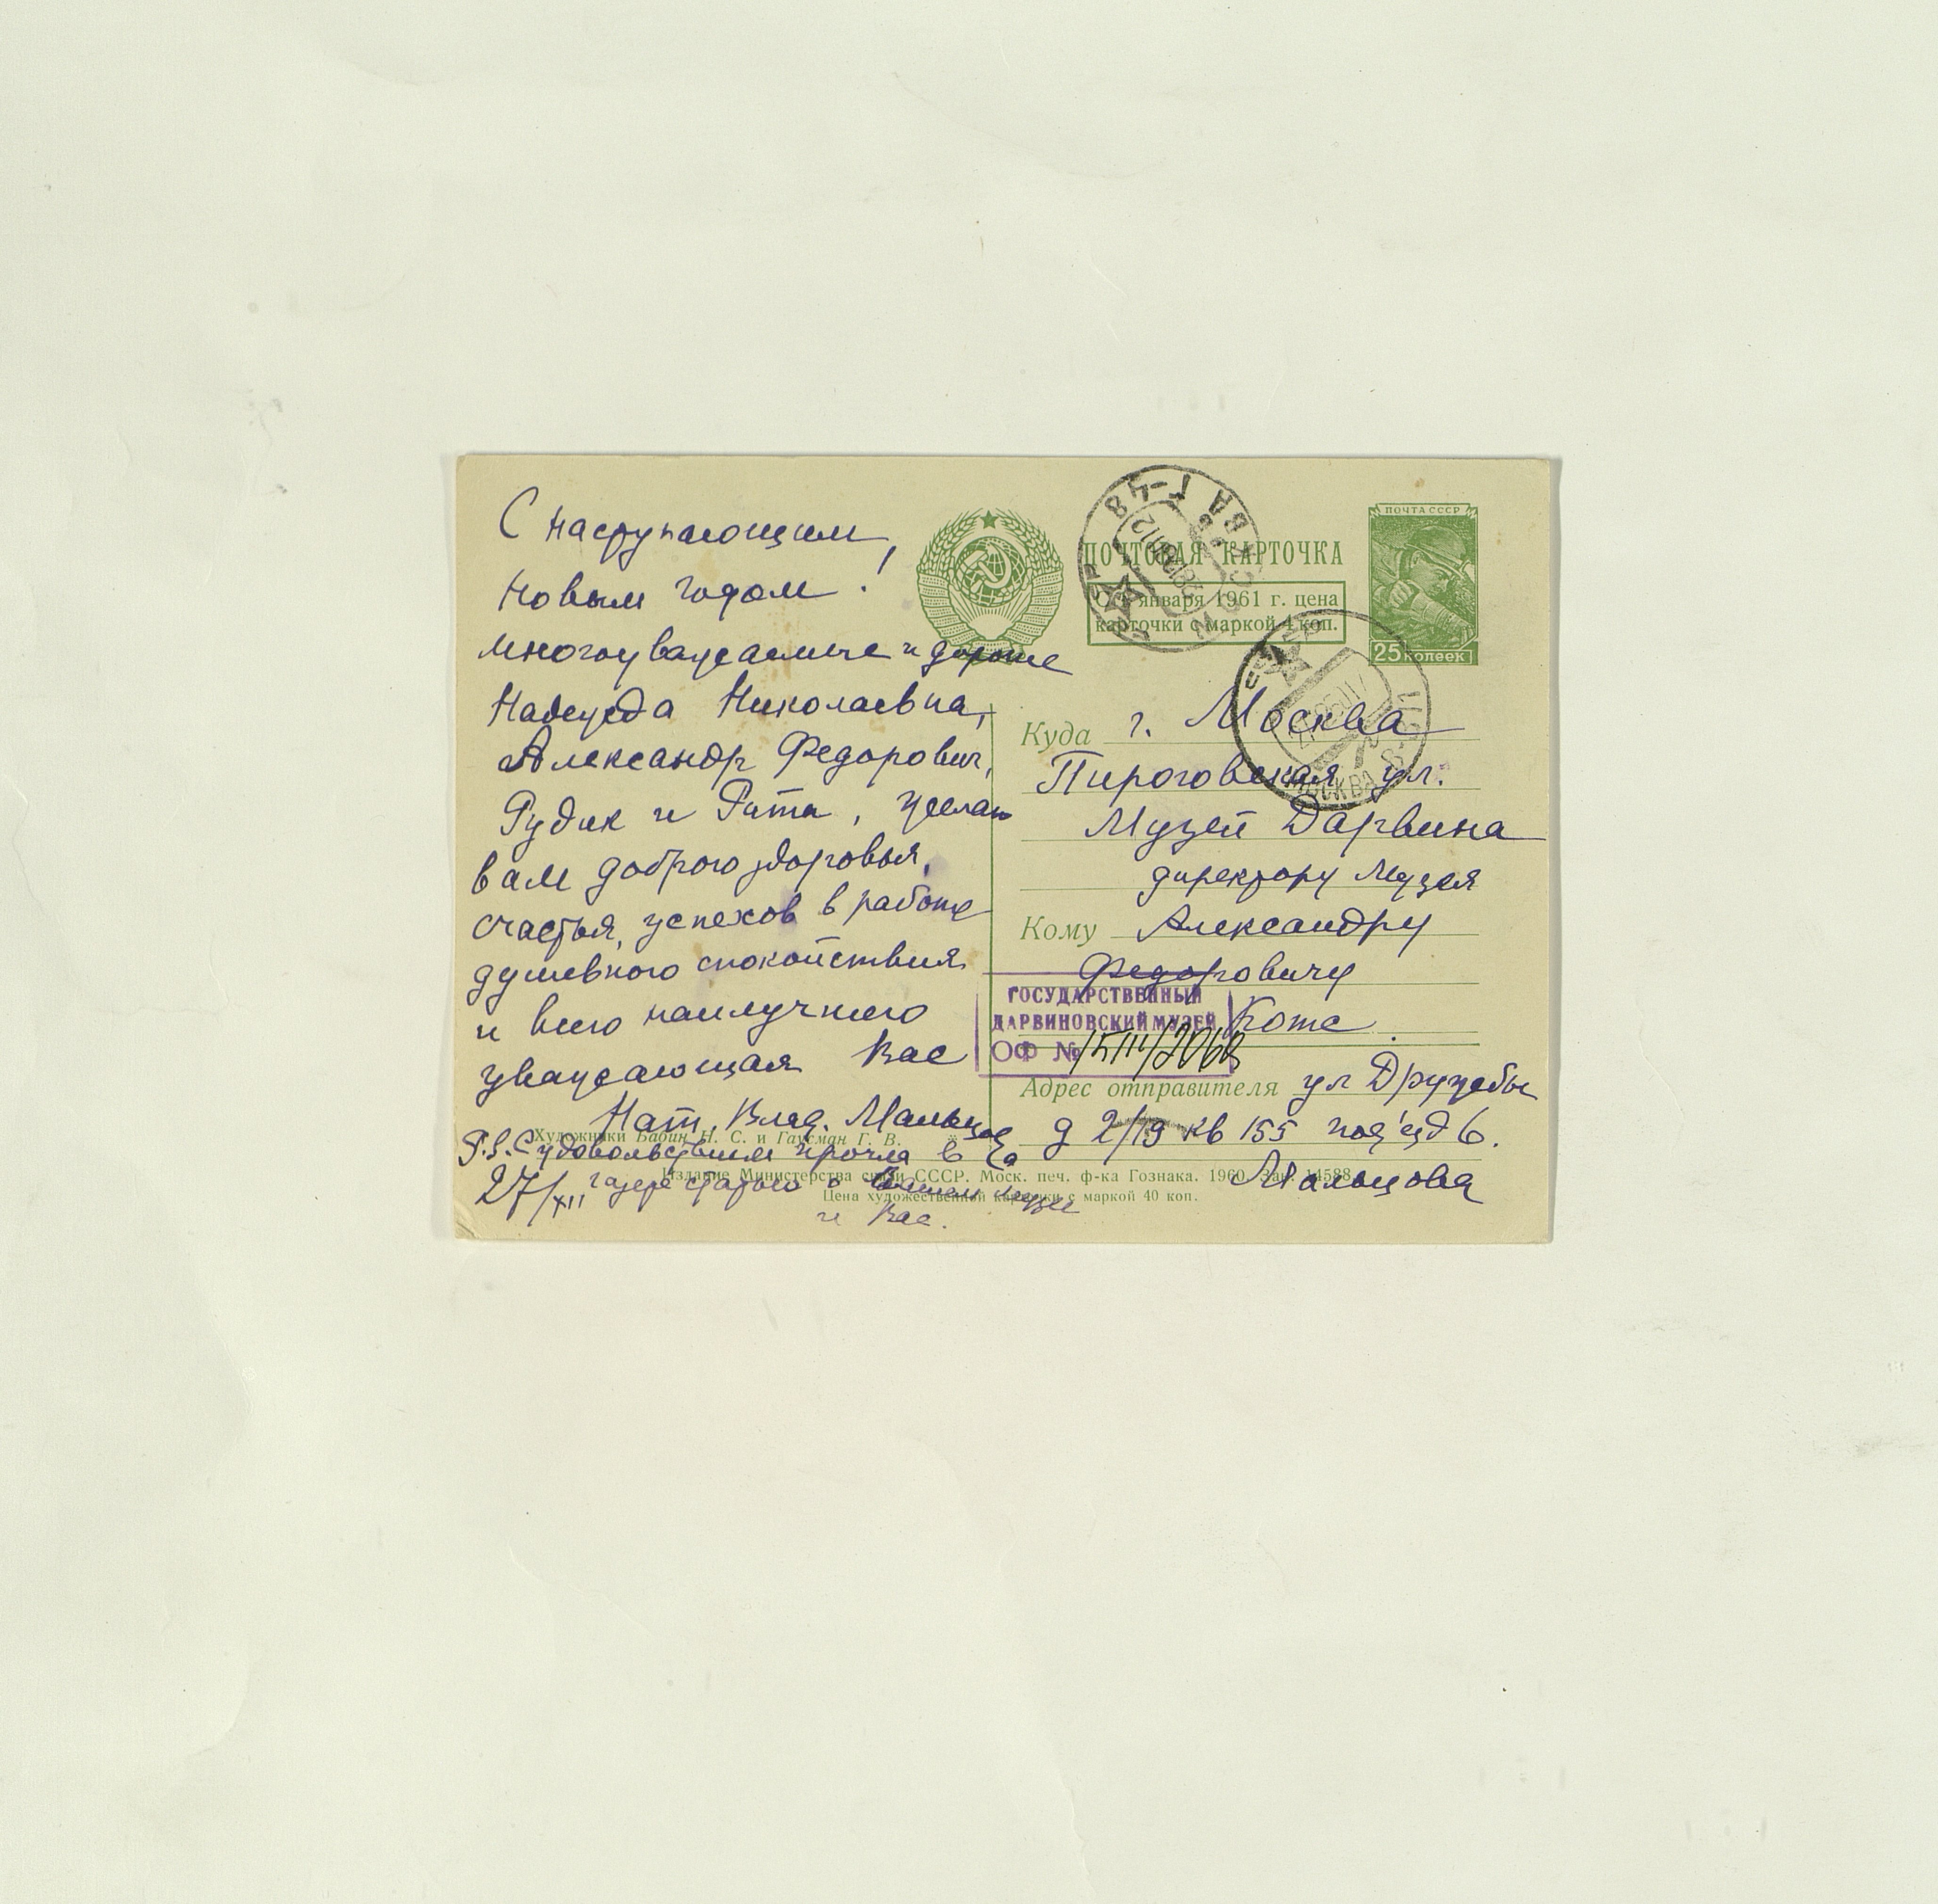 С наступающим
Новым годом!
многоуважаемые и дорогие
Надежда Николаевна,
Александр Федорович,
Рудик и Рита, желаю
вам доброго здоровья,
счастья, успехов в работе
душевного спокойствия
и всего наилучшего
уважающая Вас
Нат. Влад. Мальцова
P.S. С удовольствием прочла в
газете статью о Вашем музее
и Вас.
27/XII
Художники Бабин Н. С. и Гаусман Г. В.
Издание Министерства связи СССР. Моск. печ. ф-ка Гознака. 1960. Зак. 14588
Цена художественной карточки с маркой 40 коп.
ПОЧТОВАЯ КАРТОЧКА
С 1 января 1961 г. цена
карточки с маркой 4 коп.
ПОЧТА СССР
25 копеек
МОСКВА Г-48
МОСКВА
Куда г. Москва
Пироговская ул.
Музей Дарвина
директору Музея
Кому Александру
Федоровичу
Котс
ГОСУДАРСТВЕННЫЙ
ДАРВИНОВСКИЙ МУЗЕЙ
ОФ №
Адрес отправителя ул Дружбы
д 2/19 кв 155 под'езд 6.
Мальцова